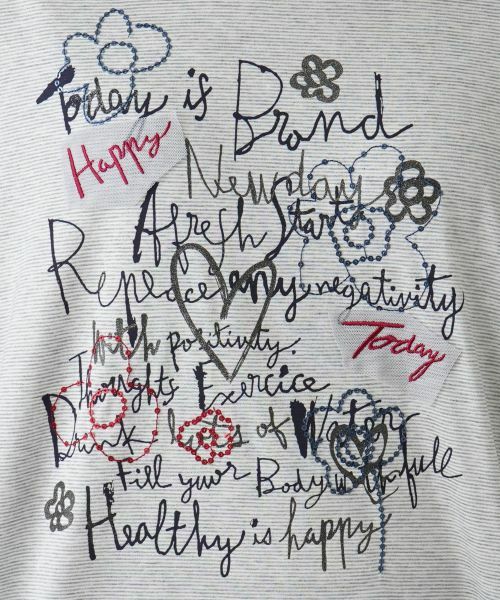 Today is
Brand
Happy
Newday
Afresh Start
Repeace any negativity
With positivity.
Today
Thoughts Exercice
Drink lots of Water
Fill your Body with full
Healthy is happy